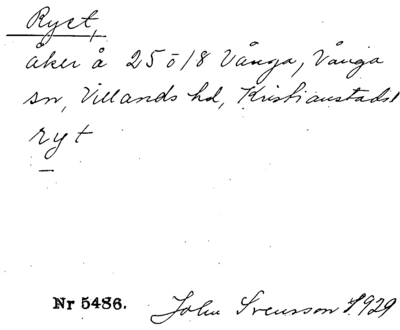 Ryet,
åker å 25 ö/8 Vånga, Vånga
sn, Villands hd, Kristianstads l
ryt
Nr 5486. John Svensson 1929